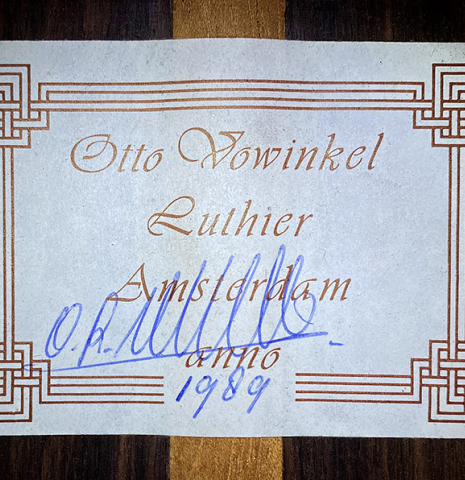 Otto Vowinkel
Luthier
Amsterdam
anno
1989